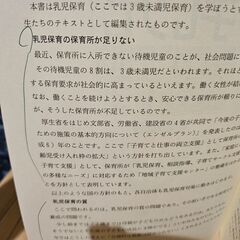 本書は乳児保育（ここでは３歳未満児保育）を学ぼうと
生たちのテキストとして編集されたものです。
乳児保育の保育所が足りない
最近、保育所に入所できない待機児童のことが、社会問題に
その待機児童の８割は、３歳未満児だといわれます。それほど
う要求が社会的に高まっているといえます。働く女性が結
なお、子育てしながら働き続けるとき、安心できる保育所が頼り
りにも不十分です。
厚生省をはじめ文部省、労働省、建設省の４省が共同で「今後の子
ための施策の基本的方向について（エンゼルプラン）」を発表した
成６）年のことです。ここで「子育てと仕事の両立支援」として
齢児受け入れ枠の拡大）」があげられています。それとともに
子育て支援」として、保育所が「乳児保育、相談指導、子育てサークル支
の多様なニーズ」にこたえるため「地域子育て支援センター」の整備
とを方針として表明しています。
以上のような国の方針のもと、各自治体も乳児保育の
乳児保育の質
ここで問われるのは、